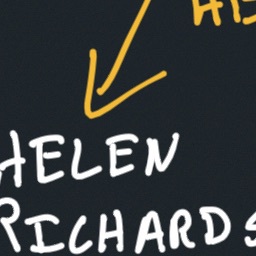 HELEN
RICHARDS